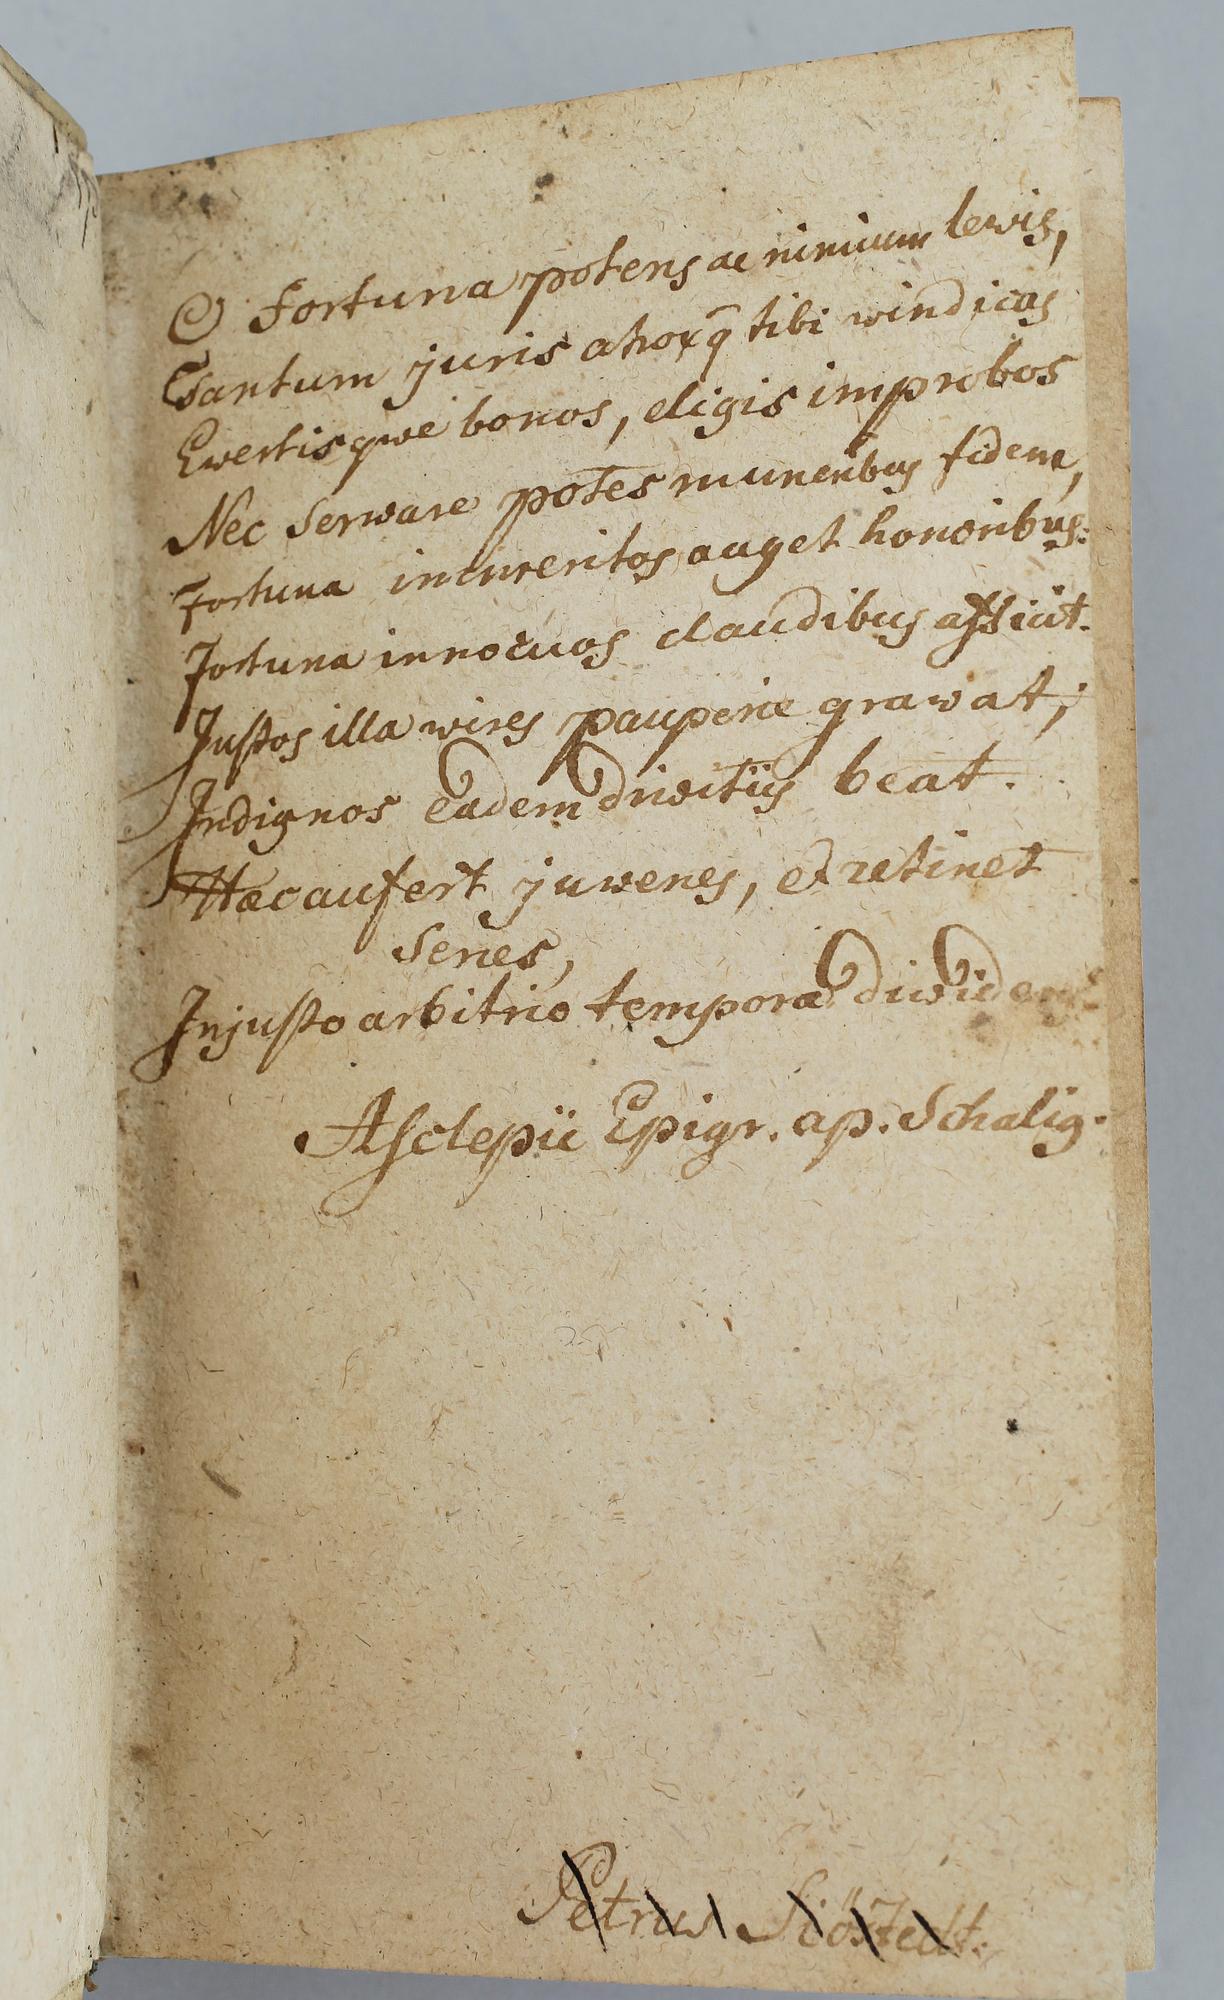 O Fortuna potens ac nimium lewis,
Tantum juris atroxq̃ tibi windicas
Ewertisqwe bonos, eligis improbos
Nec serware potes muneribus fidem,
Fortuna immeritos auget honoribus:
Fortuna innocuos claudibus afficit.
Justos illa wires pauperie grawat;
Indignos eadem diwitijs beat.
Hæc aufert juwenes, et retinet
senes,
Injusto arbitrio tempora diwidens
Asclepii Epigr. ap. Schalig.
Petrus Siöstedt.